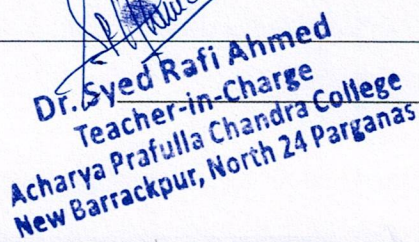 Dr. Syed Rafi Ahmed
Teacher-in-Charge
Acharya Prafulla Chandra College
New Barrackpur, North 24 Parganas